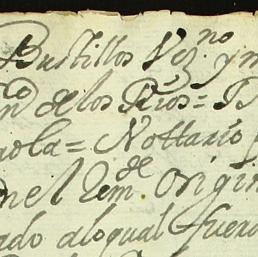 Bustillos Vez.no y
de los Rios =
= Nottario
en el Rem.de Origin
ado aloqual fuero